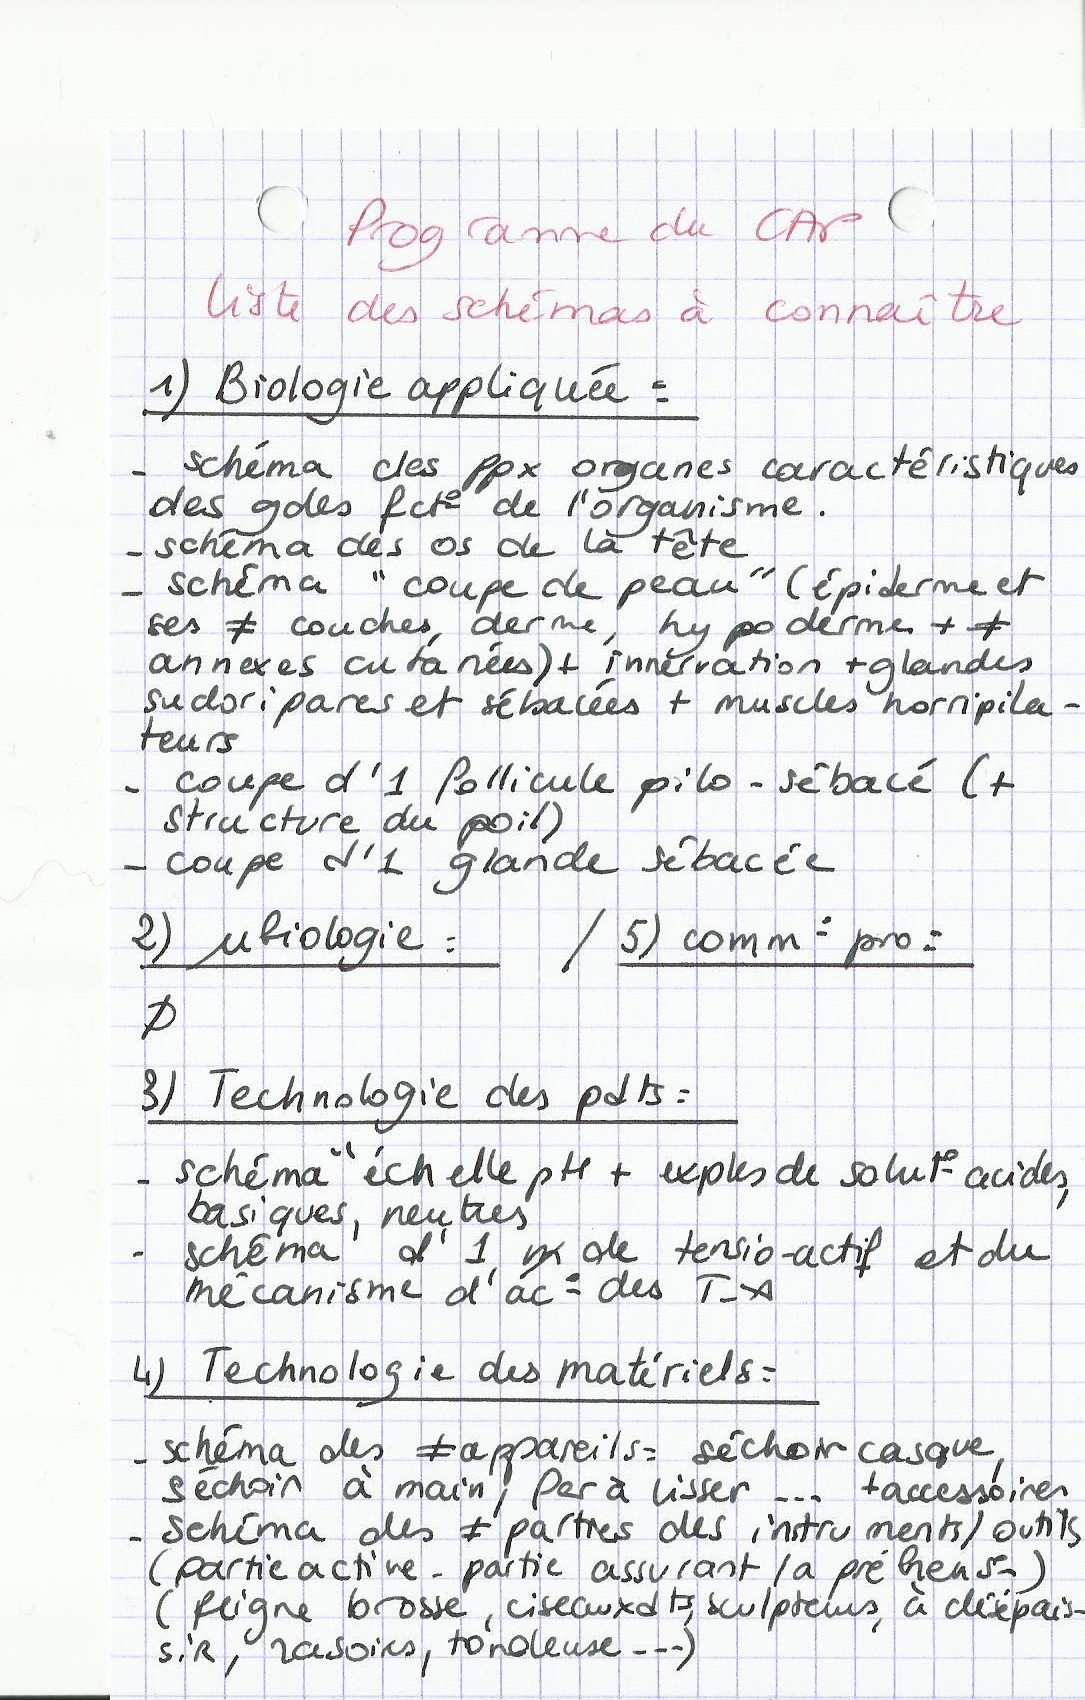 Programme du CAP
liste des schémas à connaître
1) Biologie appliquée :
- schéma des ppx organes caractéristiques
des gdes fct° de l'organisme.
- schéma des os de la tête
- schéma "coupe de peau" (épiderme et
ses ≠ couches, derme, hypoderme + ≠
annexes cutanées) + innervation + glandes
sudoripares et sébacées + muscles horripila-
teurs
- coupe d'1 follicule pilo-sébacé (+
structure du poil)
- coupe d'1 glande sébacée
2) µbiologie : / 5) comm° pro :
Ø
3) Technologie des pdts :
- schéma "échelle pH + exples de solut° acides,
basiques, neutres
- schéma d'1 de tensio-actif et du
mécanisme d'ac° des T-A
4) Technologie des matériels :
- schéma des ≠ appareils : séchoir casque,
séchoir à main, fer à lisser ... + accessoires
- schéma des ≠ parties des instruments/outils
(partie active - partie assurant la préhens°)
(peigne brosse, ciseaux dts, sculpteurs, à désépais-
sir, rasoirs, tondeuse ---)